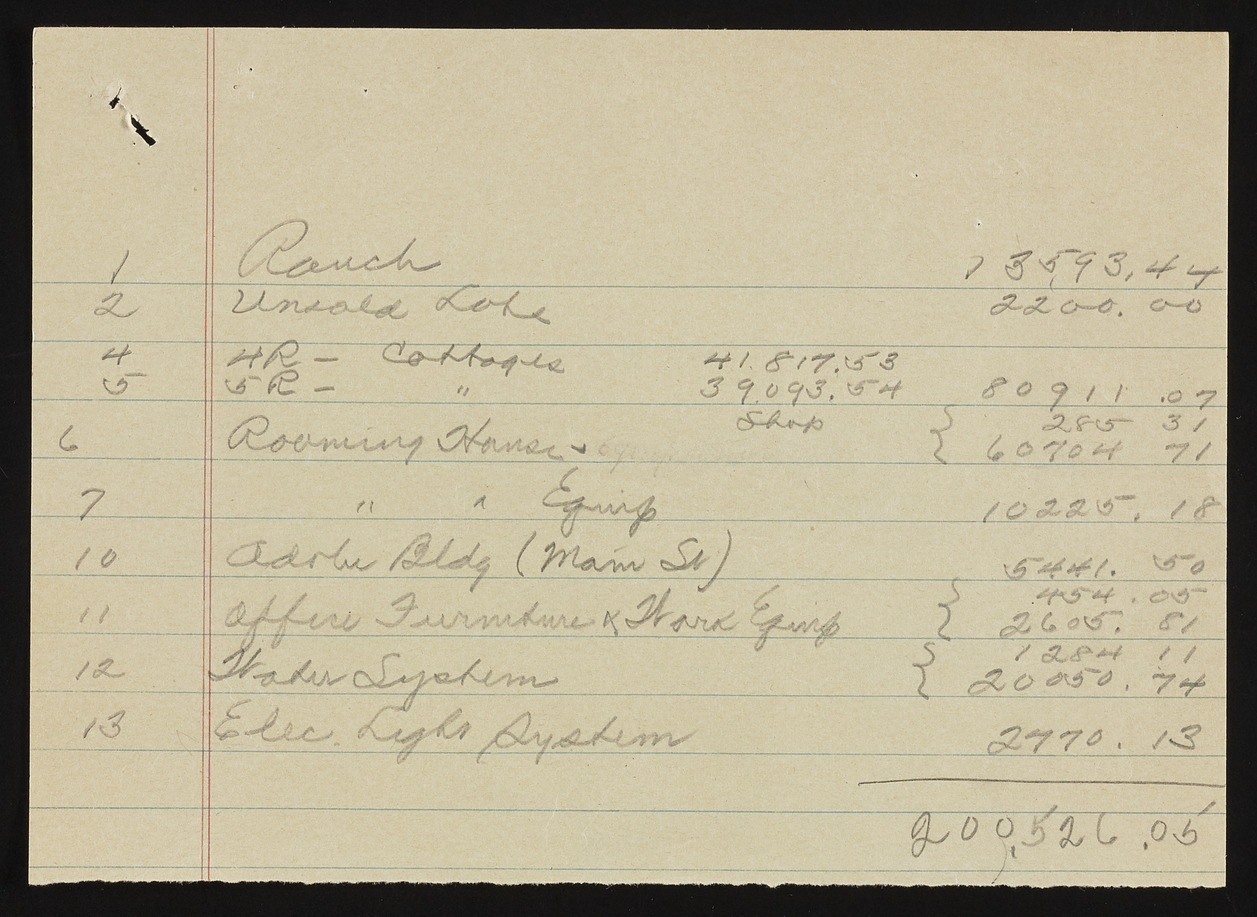 1 Ranch 13593.44
2 Unsold Lots 2200.00
4 4R - Cottages 41.817.53
5 5R - " 39.093.54 80911.07
Shop 285 31
6 Rooming House & 60704 71
7 " " Equip 10225.18
10 Adobe Bldg (Main St) 5441.50
454.05
11 Office Furniture & Work Equip 2605.81
1284 11
12 Water System 20050.74
13 Elec. Light System 2770.13
200,526.05